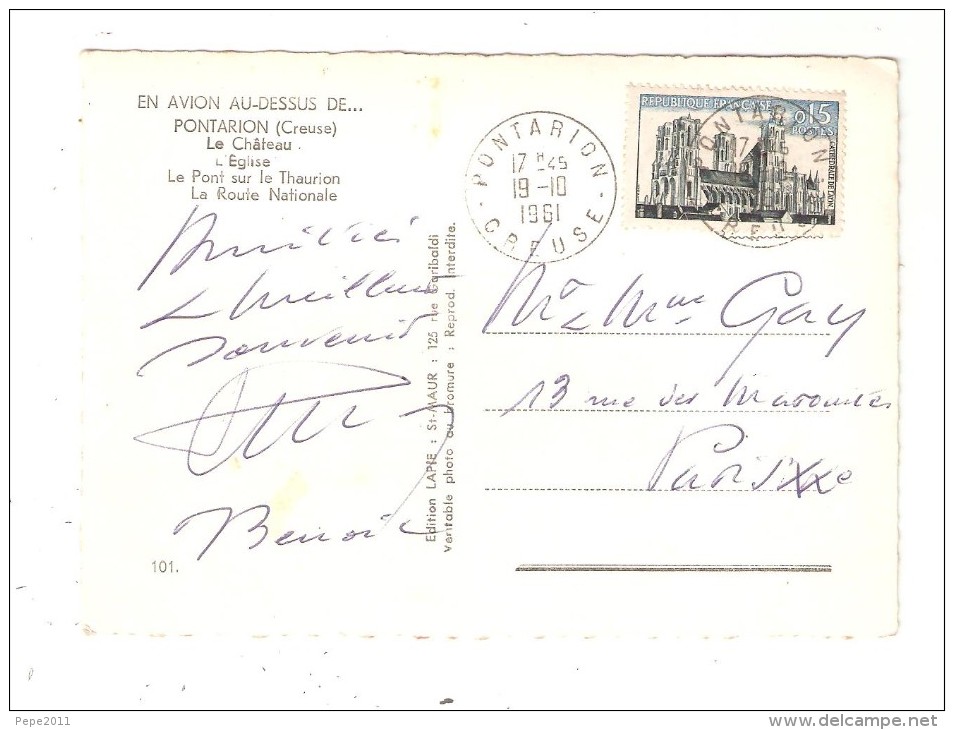 EN AVION AU-DESSUS DE...
PONTARION (Creuse)
Le Château
L'Église
Le Pont sur le Thaurion
La Route Nationale
Amitiés
& Meilleurs
souvenirs
Benoit
101.
Edition LAPIE : St-MAUR : 125 rue Garibaldi
Véritable photo au bromure : Reprod. Interdite.
PONTARION
17 H 45
19-10
1961
CREUSE
REPUBLIQUE FRANÇAISE
0,15
POSTES
CATHEDRALE DE LAON
PONTARION
CREUSE
Mr & Mme Gay
13 rue des Maronites
Paris XXe
Pepe2011
www.delcampe.net